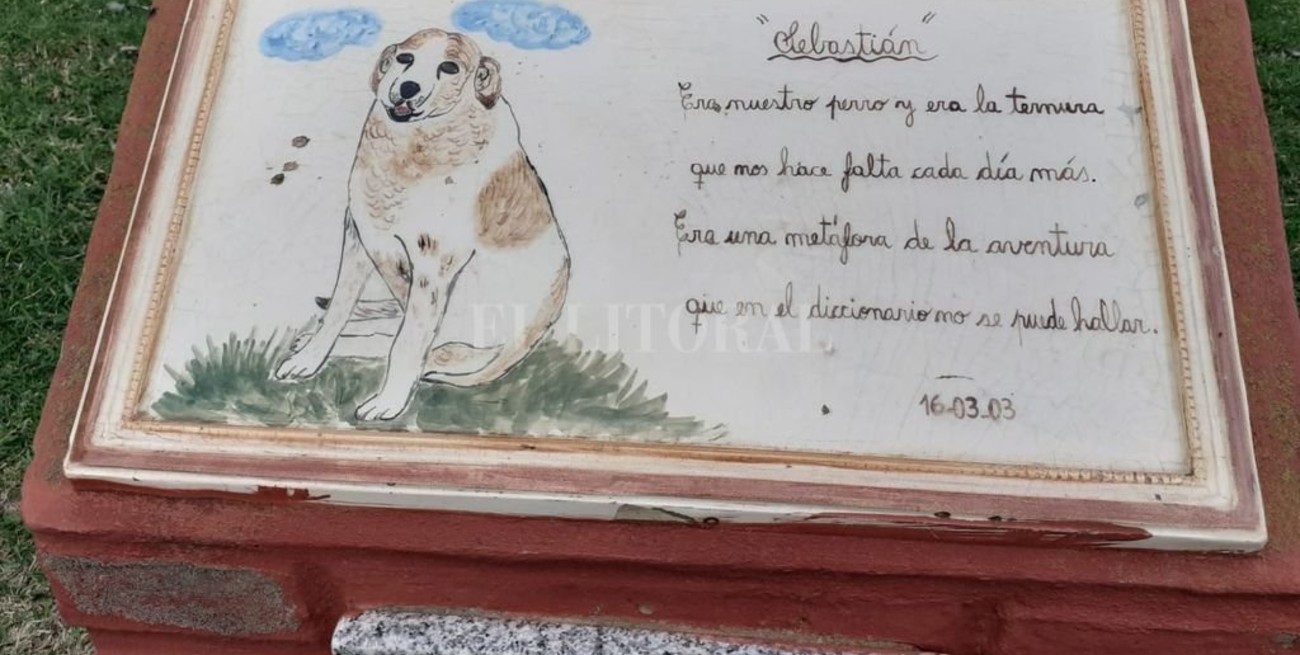 "Sebastián"
Era nuestro perro y era la ternura
que nos hace falta cada día más.
Era una metáfora de la aventura
que en el diccionario no se puede hallar.
EL LITORAL
16-03-03